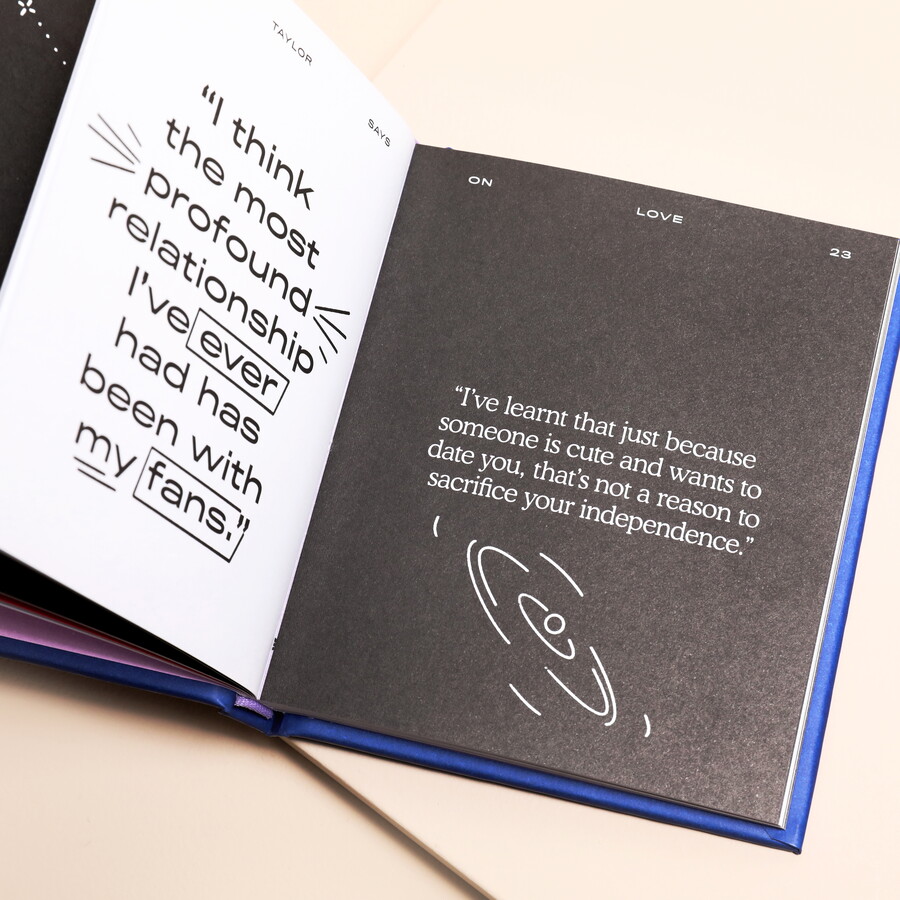 TAYLOR
SAYS
“I think
the most
profound
relationship
I've ever
had has
been with
my fans.”
ON
LOVE
23
“I’ve learnt that just because
someone is cute and wants to
date you, that’s not a reason to
sacrifice your independence.”